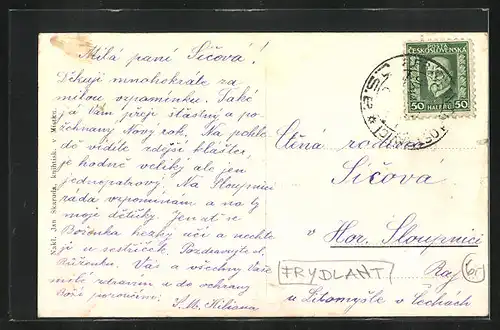 Milá paní Síčová!
Děkuji mnohokráte za
milou vzpomínku. Také
já Vám přeji šťastný a po-
žehnaný Nový rok. Na pohle-
dě vidíte zdejší klášter,
je hodně veliký ale jen
jednopatrový. Na Sloupnici
ráda vzpomínám a na ty
moje dětičky. Jen ať se
Boženka hezky učí a nechte
ji u sestřiček. Pozdravujte st.
Růženku. Vás a všechny Vaše
milé zdravím a do ochrany
Boží poroučím.
S. M. Kiliana
Nakl. Jan Skarda, knihtisk. v Místku
POŠTA
ČESKOSLOVENSKÁ
50 HALÉŘŮ 50
Ctěná rodina
Síčová
Hor. Sloupnici
FRYDLANT
u Litomyšle v Čechách